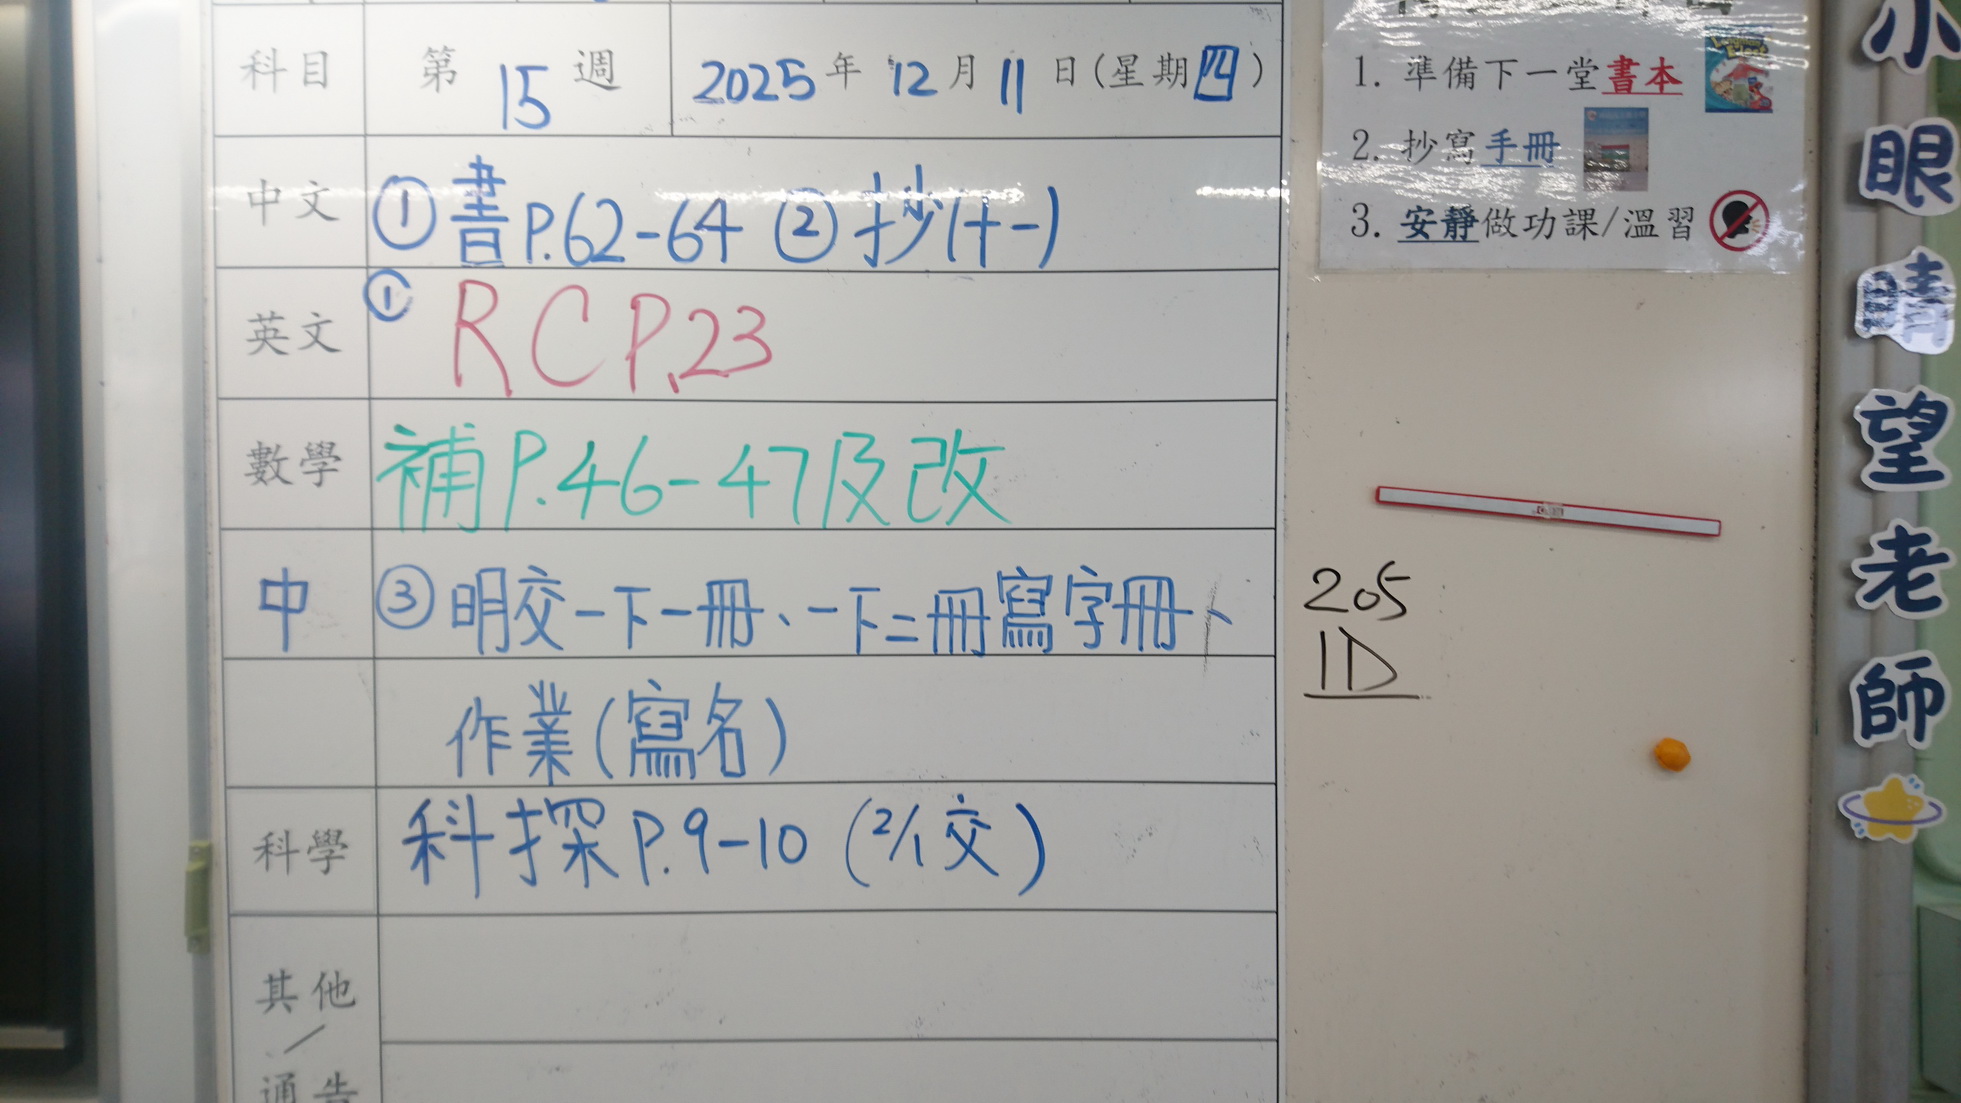 科目 第15週 2025年12月11日(星期四)
中文 ①書P.62-64 ②抄(十一)
英文 ①RC P.23
數學 補P.46-47及改
中 ③明交一下一冊、一下二冊寫字冊、
作業(寫名)
科學 科探P.9-10 (2/1交)
其他
/
通告
1. 準備下一堂書本
2. 抄寫手冊
3. 安靜做功課/溫習
205
1D
小眼睛望老師